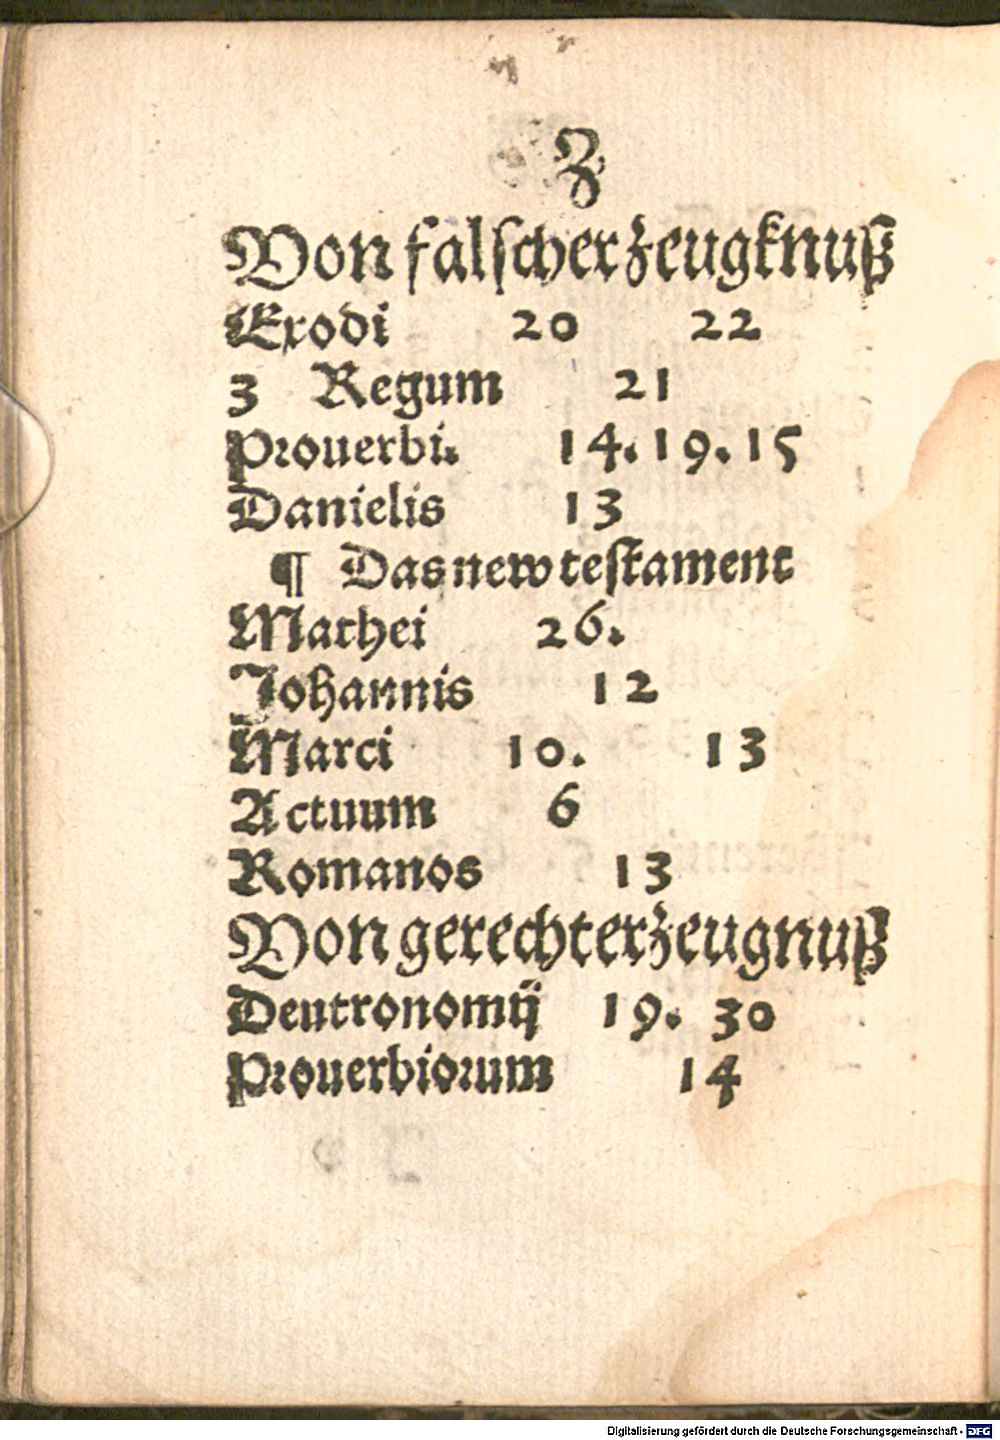 Z
Von falscher zeugknuß
Exodi 20 22
3 Regum 21
Prouerbi. 14. 19. 15
Danielis 13
¶ Das new testament
Mathei 26.
Johannis 12
Marci 10. 13
Actuum 6
Romanos 13
Von gerechter zeugnuß
Deutronomij 19. 30
Prouerbiorum 14
Digitalisierung gefördert durch die Deutsche Forschungsgemeinschaft - DFG